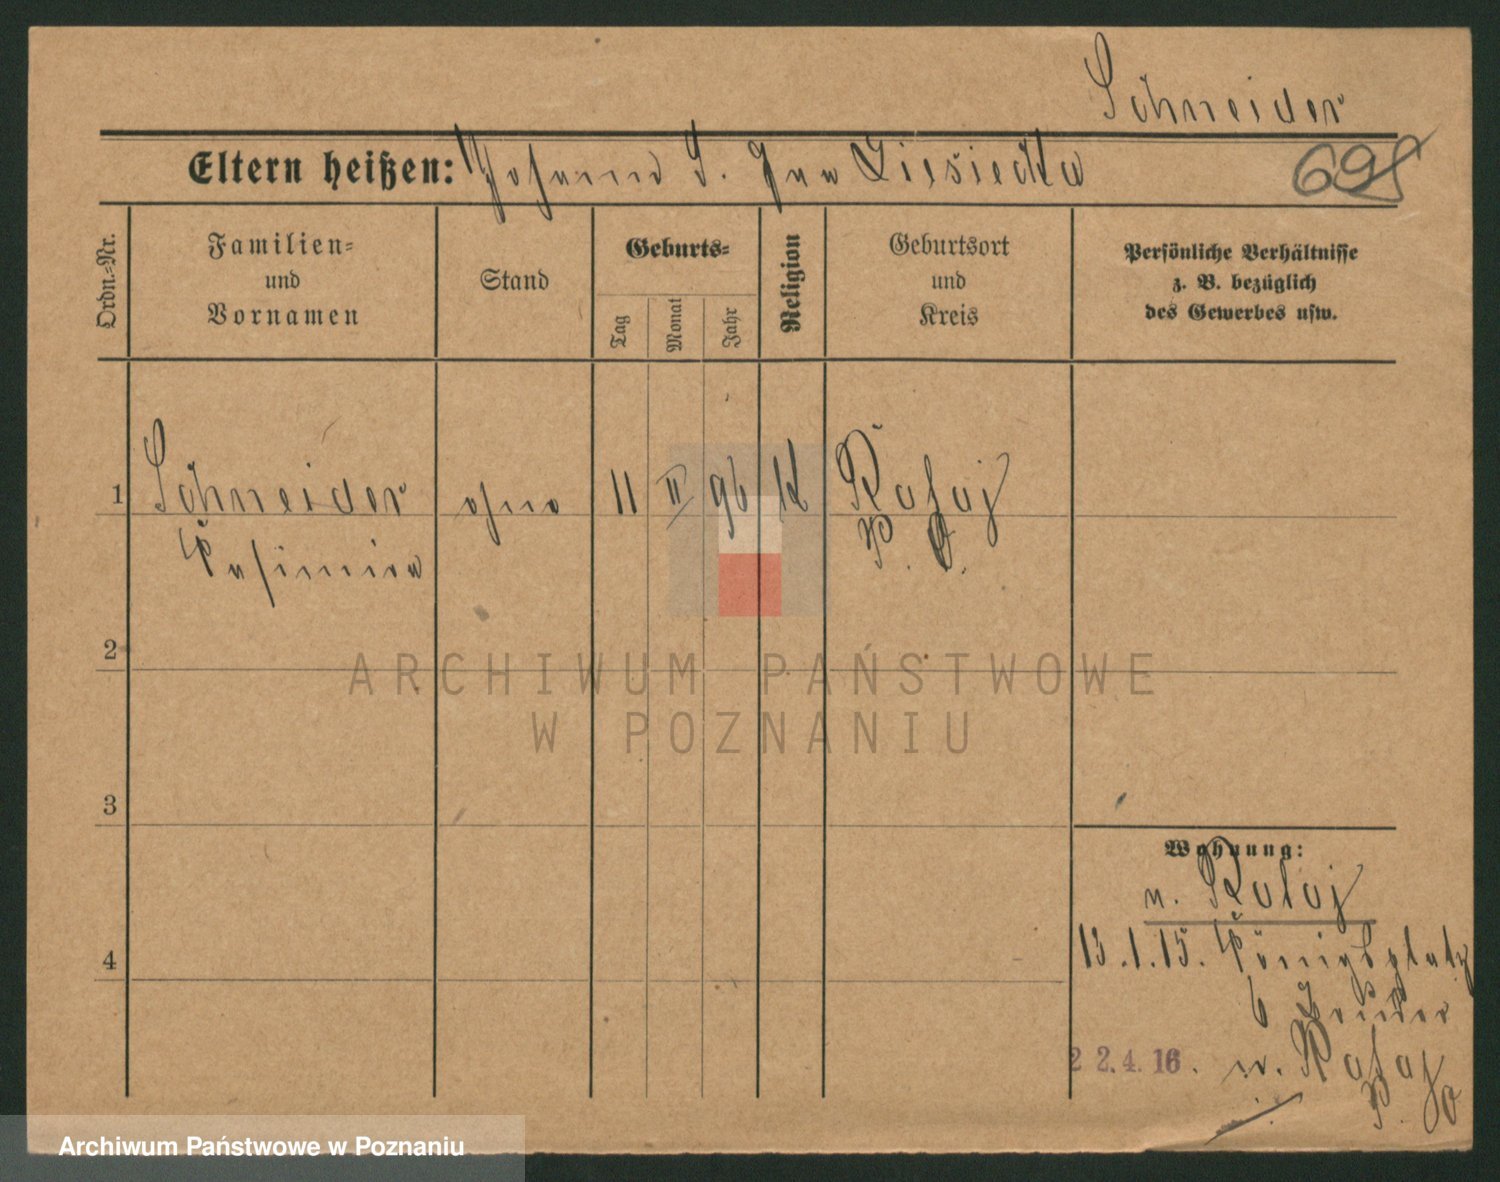 Schneider
Eltern heißen: Johann S.
698
Ordn.-Nr.
Familien-
und
Vornamen
Stand
Geburts-
Tag
Monat
Jahr
Religion
Geburtsort
und
Kreis
Persönliche Verhältnisse
z. B. bezüglich
des Gewerbes usw.
1 Schneider ohne 11 II 96 K
Kasimira P. O.
2
ARCHIWUM PAŃSTWOWE
W POZNANIU
3
Wohnung:
n.
13.1.15. Königsplatz
4
6
22.4.16. n.
P. O
Archiwum Państwowe w Poznaniu